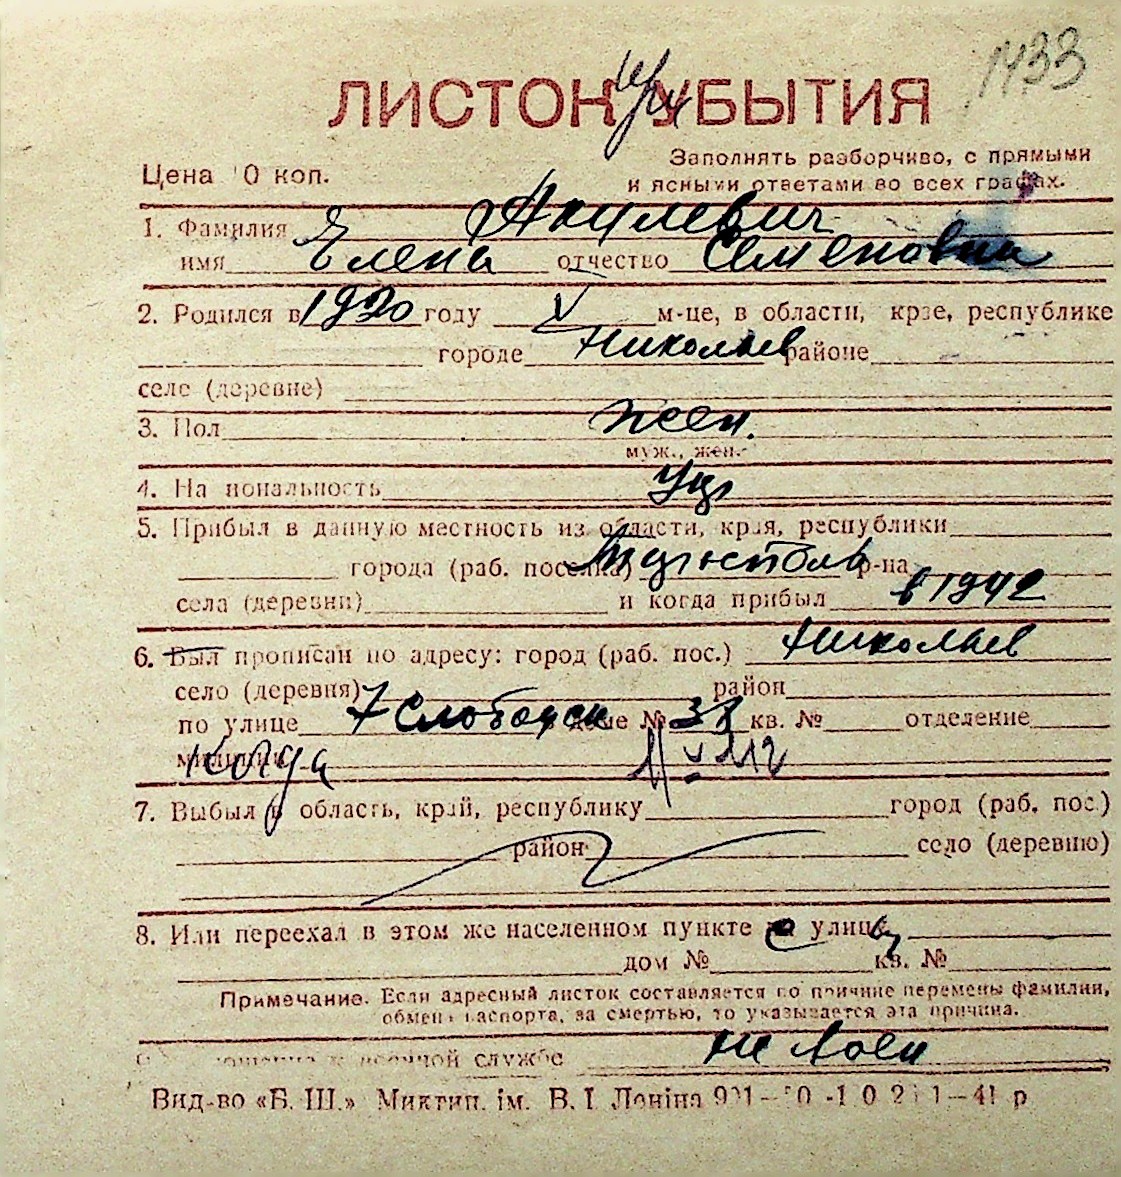 1433
ЛИСТОК УБЫТИЯ
Цена 10 коп.
Заполнять разборчиво, с прямыми
и ясными ответами во всех графах.
1. Фамилия Акулевич
имя Елена отчество Семеновна
2. Родился в 1920 году V м-це, в области, крае, республике
городе Николаев районе
селе (деревне)
3. Пол жен.
муж., жен.
4. Национальность Укр
5. Прибыл в данную местность из области, края, республики
города (раб. поселка) р-на
села (деревни) и когда прибыл в 1942
6. Был прописан по адресу: город (раб. пос.) Николаев
село (деревня) район
по улице 7 Слободск доме № кв. № отделение
милиции когда
7. Выбыл в область, край, республику город (раб. пос.)
район село (деревню)
8. Или переехал в этом же населенном пункте с улицы
дом № кв. №
Примечание. Если адресный листок составляется по причине перемены фамилии,
обмена паспорта, за смертью, то указывается эта причина.
военной службе не воен
Вид-во «Б. Ш.» Миктип. ім. В. І Леніна